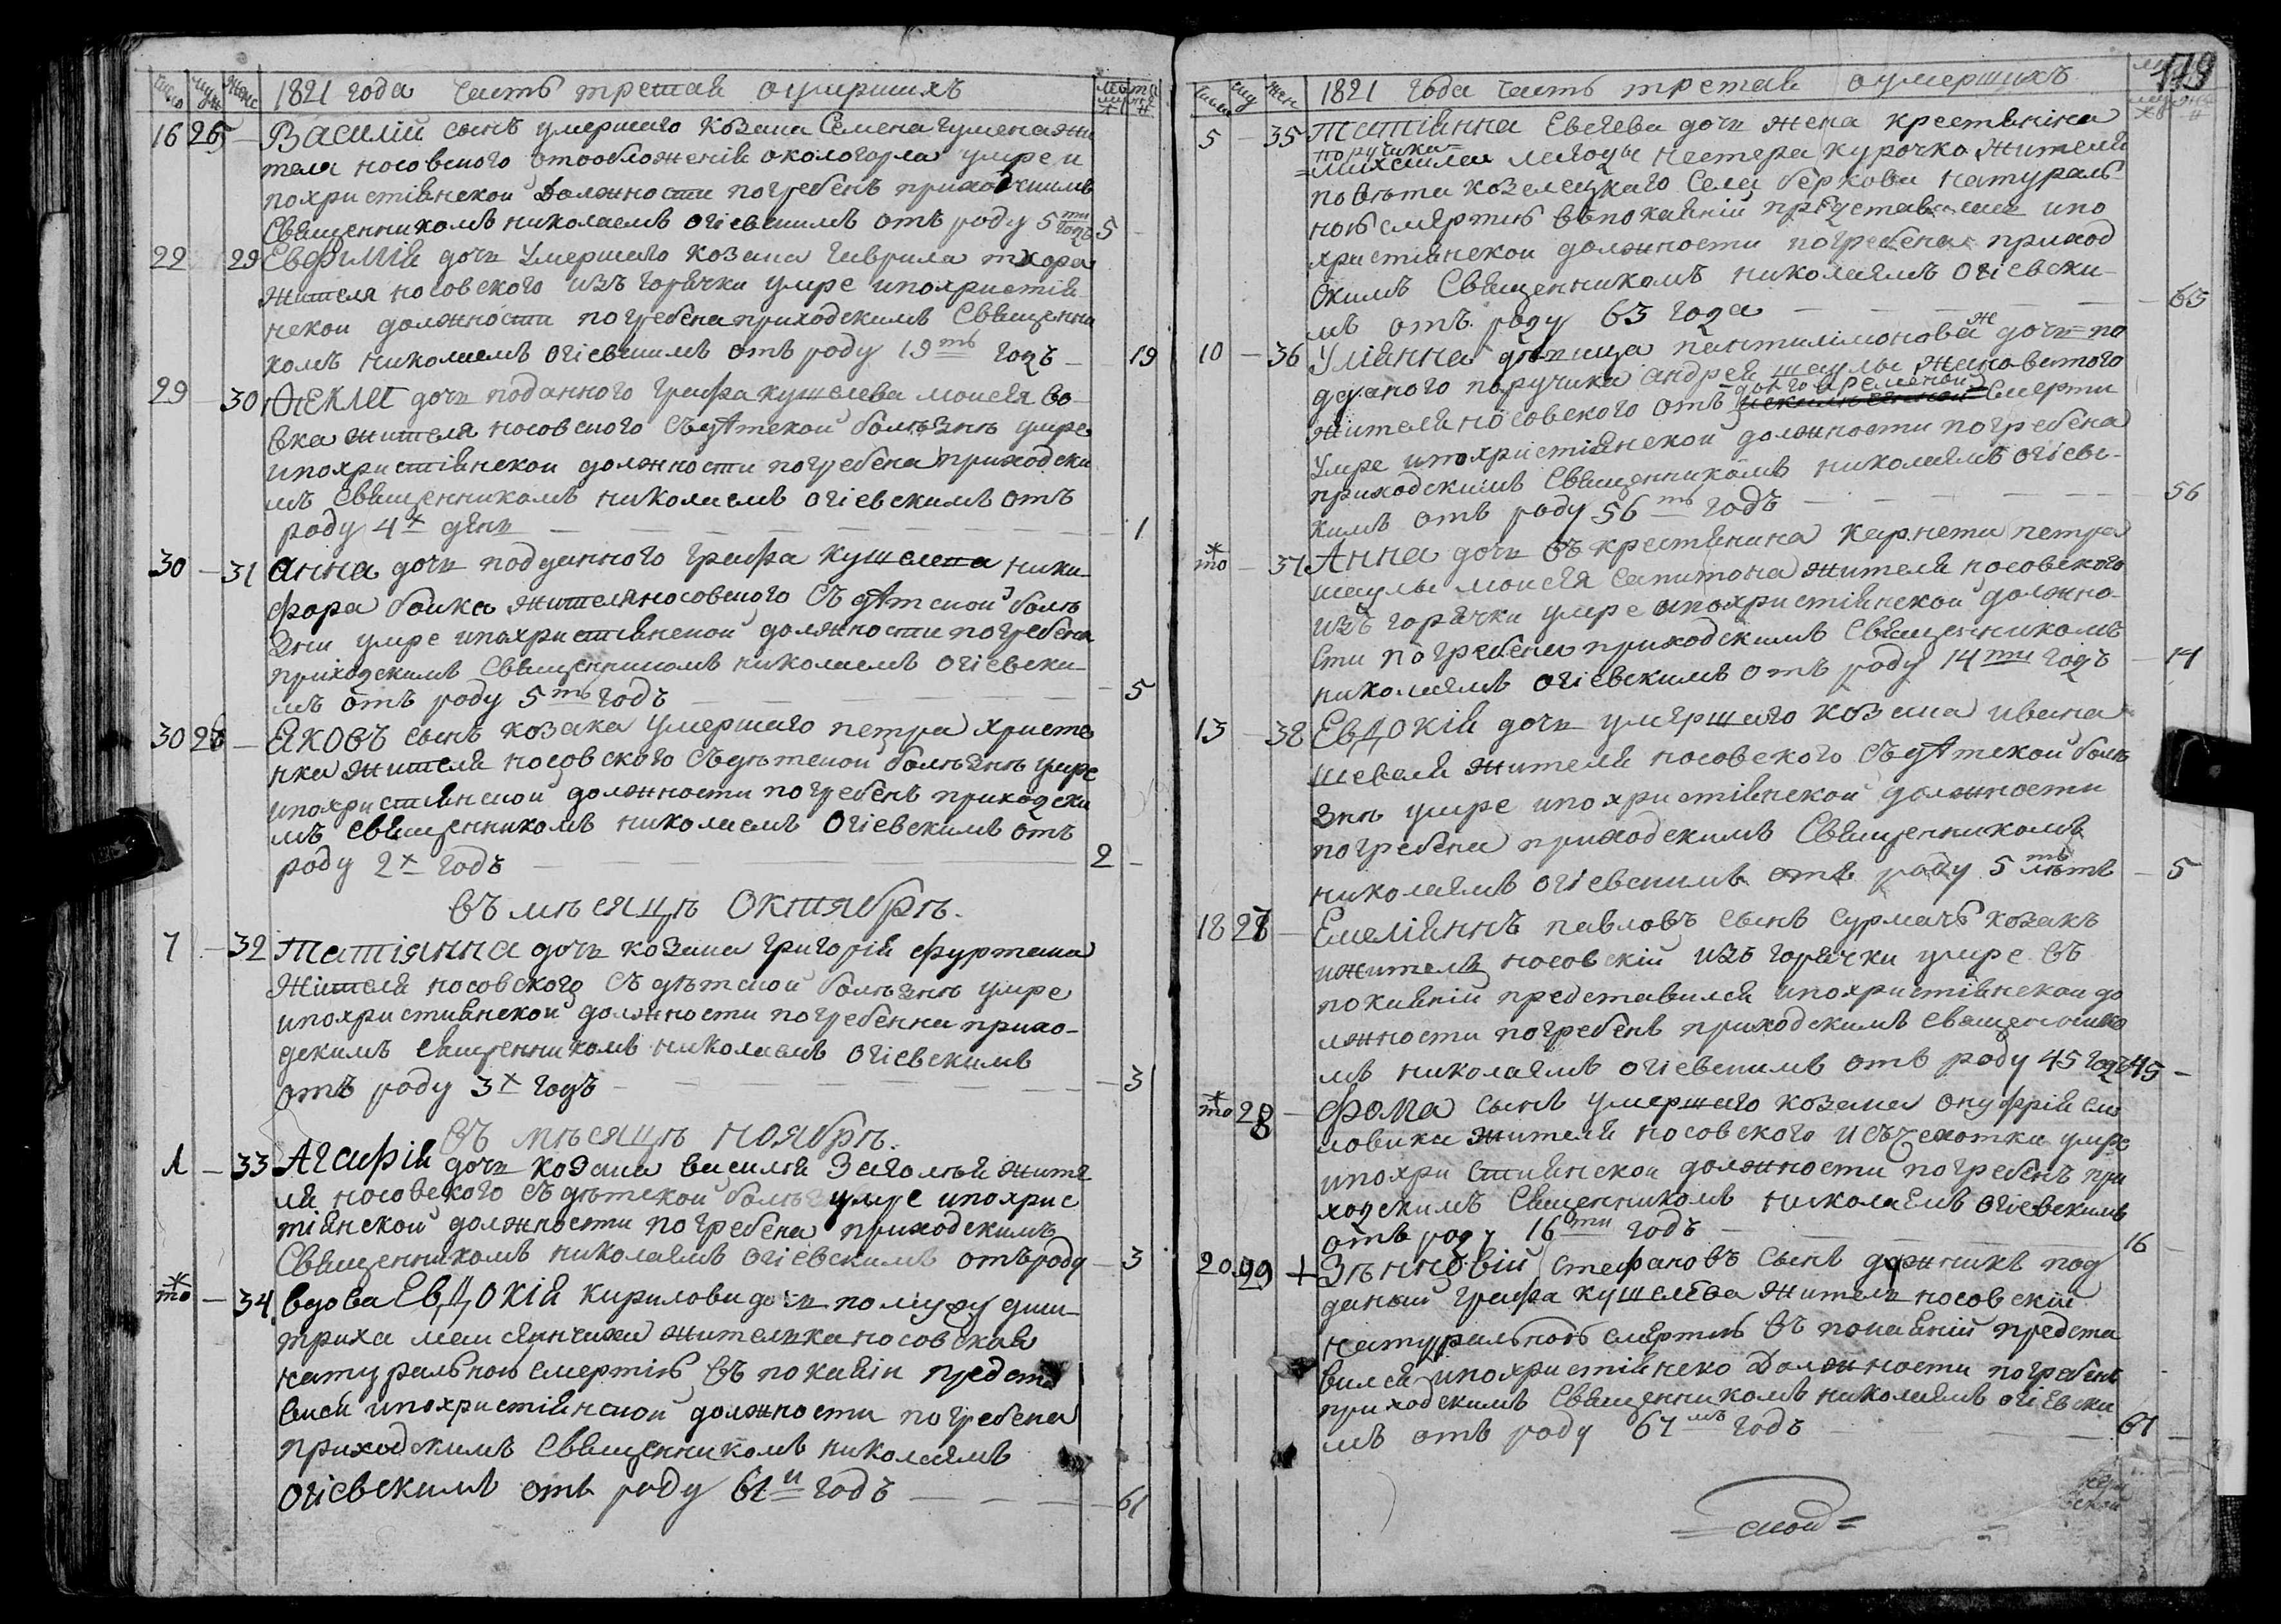 число муж женс 1821 года часть третая оумершихъ лѣта
муж же
16 25 Василій сынъ умершаго козака Семена Гуменая жи
теля носовского отообложеній окологорла умре и
похристіянской должности погребенъ приходским
священникомъ николаемъ огіевскимъ отъ роду 5ти годъ 5
22 29 Евфимія дочь умершаго козака Гаврила тхора
жителя носовского изъ горячки умре ипохристія
нской должности погребена приходскимъ священни
комъ николаемъ огіевскимъ отъ роду 19ть годъ 19
29 30 Фекла дочь поданного графа кушелева моисея во
вка жителя носовского съ дѣтской болѣзнѣ умре
ипохристіянской должности погребена приходски
мъ священникомъ николаемъ огіевскимъ отъ
роду 4х день 1
30 31 анна дочь подданного графа кушелева ники
фора бойка жителя носовского съ дѣтской болѣ
зни умре ипохристіянской должности погребена
приходскимъ священникомъ николаемъ огіевски
мъ отъ роду 5ть годъ 5
30 26 Яковъ сынъ козака умершаго петра христе
нка жителя носовского съ дѣтской болѣзнѣ умре
ипохристіянской должности погребенъ приходски
мъ священникомъ николаемъ огіевскимъ отъ
роду 2х годъ 2
въ мѣсяцѣ Октябрѣ.
7 32 Татіянна дочь козака григорія фурташа
жителя носовского съ дѣтской болѣзнѣ умре
ипохристиянской должности погребенна прихо
дскимъ священникомъ николаемъ огіевскимъ
отъ роду 3х годъ 3
въ мѣсяцѣ ноябрѣ.
1 33 Агафія дочь козака василія Заголѣя жите
ля носовского съ дѣтской болѣз умре ипохрис
тіянской должности погребена приходскимъ
священникомъ николаямъ огіевскимъ отъроду 3
то 34 вдова Евдокія кирилова дочь по мужу дми
триха жителька носовская
натуральною смертію въ покаяніи предста
вися ипохристіянской должности погребена
приходскимъ священникомъ николаямъ
огіевскимъ отъ роду 61и годъ 61
число муж жен 1821 года часть третая оумершихъ 179
5 35 Татіянна Евсеева дочь жена крестянина
поручика
михаила нестера курочко жителя
повѣта козелецкаго села беркови натураль
ною смертію въпокаяній представилась ипо
христіянской должности погребена приход
скимъ священникомъ николаямъ огіевски
мъ отъ роду 63 года 63
10 36 Уліянна дѣвица пантилімонова дочь по
дданого поручика андрея шаулы жековитого
жителя носовского отъ долговременной смерти
умре ипохристіянской должности погребена
приходскимъ священникомъ николаямъ огіевс
кимъ отъ роду 56ть годъ 56
то 37 Анна дочь въ крестянина карнета петра
шаулы моисея сапитона жителя носовского
изъ горячки умре ипохристіянской должно
сти погребена приходскимъ священникомъ
николаямъ огіевскимъ отъ роду 14ти годъ 14
13 38 Евдокія дочь умершаго козака ивана
шевеля жителя носовского съ дѣтской болѣ
знѣ умре ипохристіянской должности
погребена приходскимъ священникомъ
николаямъ огіевскимъ отъ роду 5ть лѣтъ 5
18 27 Емеліяннъ павловъ сынъ Сурмачь козакъ
ижитель носовскій изъ горячки умре въ
покаяній представился ипохристіянской до
лжности погребенъ приходскимъ священнико
мъ николаямъ огіевскимъ отъ роду 45 годъ 45
то 28 Фома сынъ умершаго козака онуфрія
жителя носовского исъчехотки умре
ипохристиянской должности погребенъ при
ходскимъ священникомъ николаямъ огіевскимъ
отъ роду 16ти годъ 16
20 29 + Зѣнновій Стефановъ сынъ под
даный графа кушелева житель носовскій
натуральною смертію въ покаяній предста
вился ипохристіянско должности погребенъ
приходскимъ священникомъ николаямъ огіевски
мъ отъ роду 67мъ годъ 67